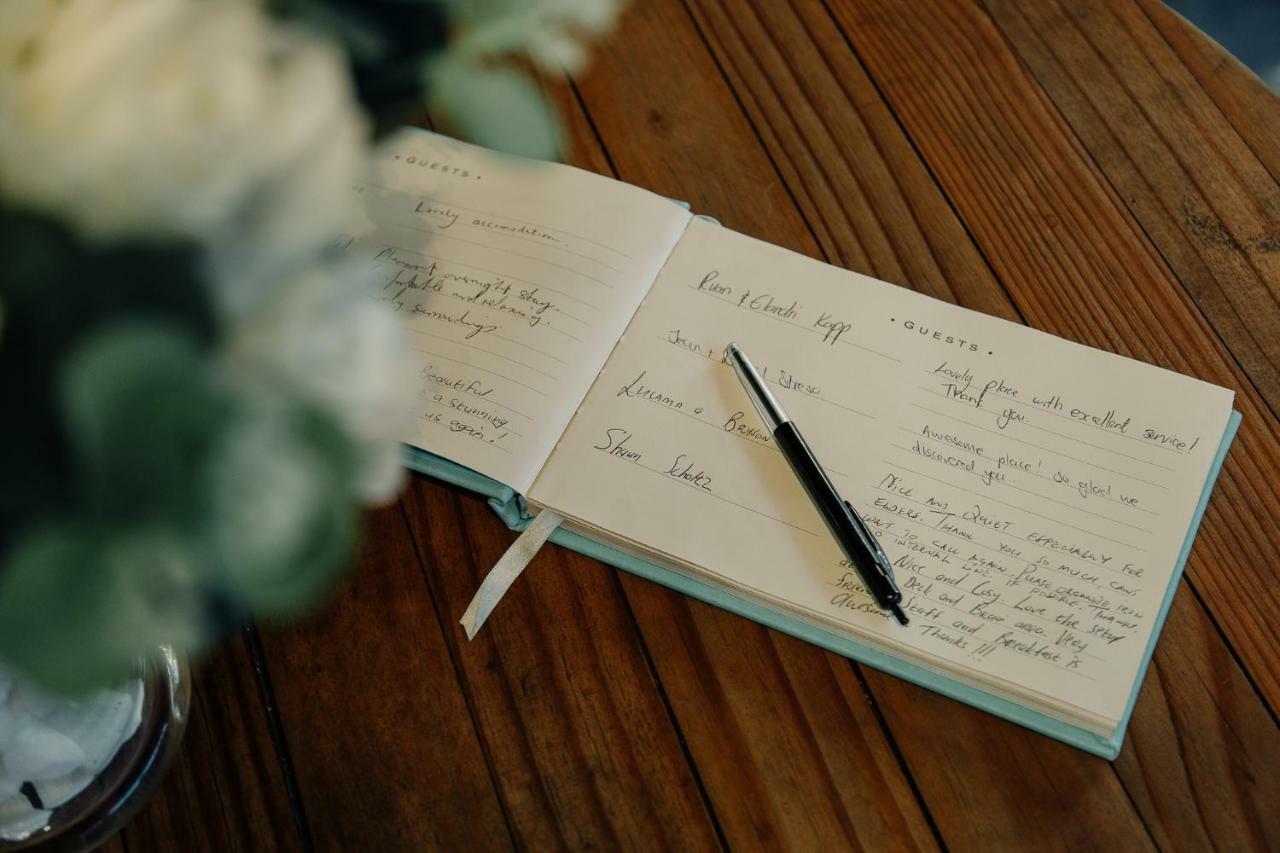 • GUESTS •
Lovely accomodation.
Pleasant overnight stay.
and relaxing.
surroundings
Beautiful
a stunning
us again!
• GUESTS •
Ruan & Elandri Kapp
Lovely place with excellent service!
Thank you.
Jean + Stress
Awesome place! So glad we
discovered you.
Lucama & Bryson
NICE AND QUIET ESPECIALLY FOR
ELDERS. THANK YOU SO MUCH CAN'T
WANT TO CALL AGAIN. PLEASE ORGANIZE IRON
INTERNAL LINE. IF POSSIBLE. THANKS.
Shaun Scholtz
Nice and Cosy Love the setup
Deck and Braai area. Very
Staff and Breakfast is
Awesome Thanks !!!